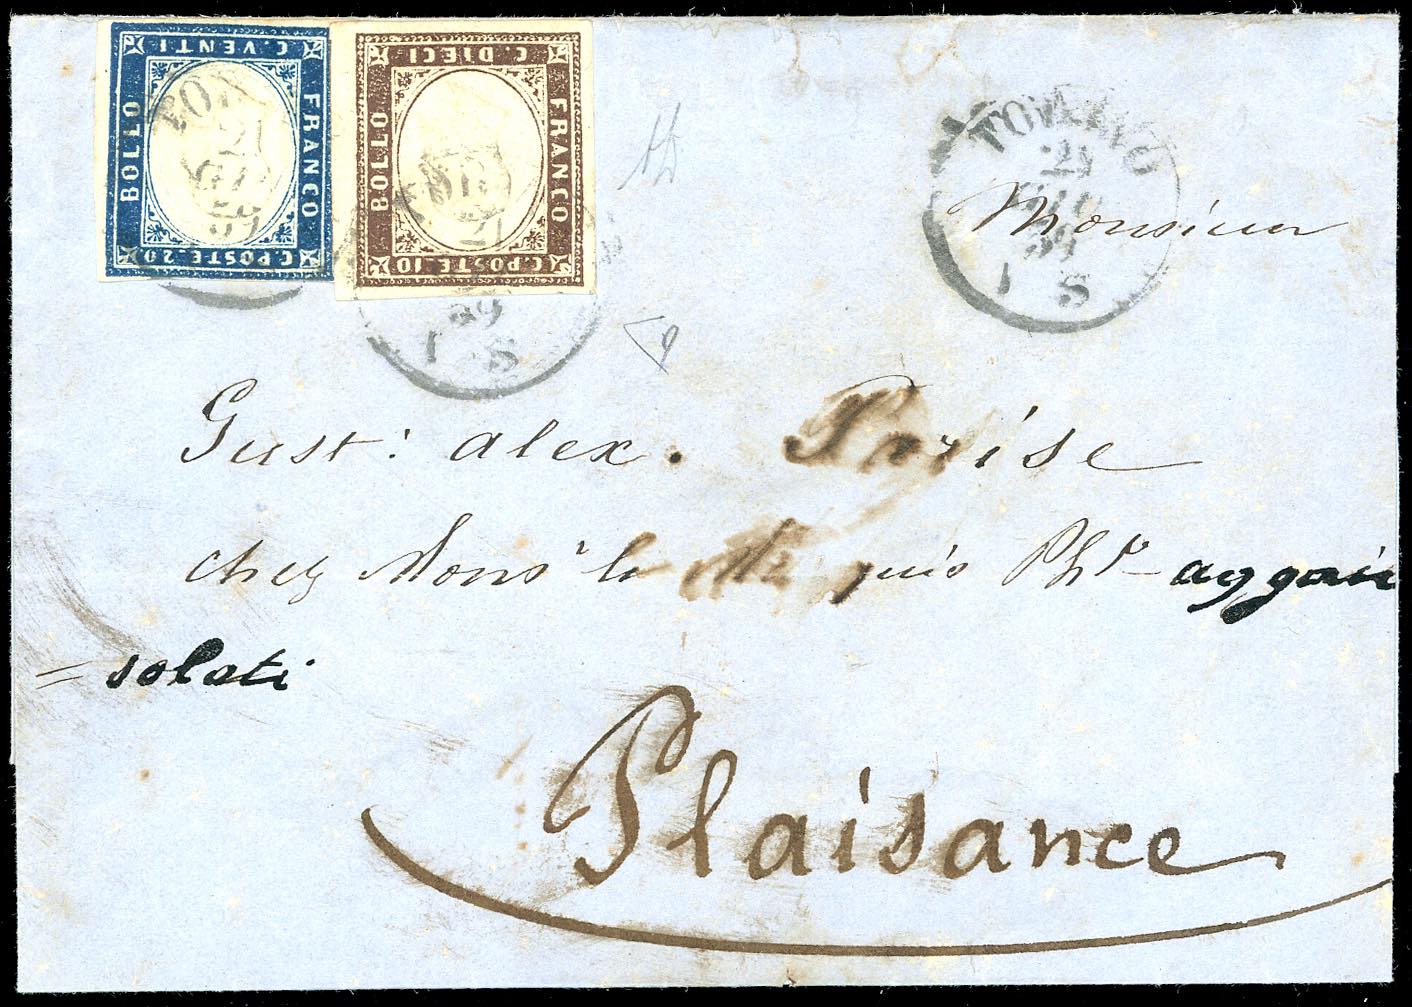 C. VENTI
BOLLO
FRANCO
C. POSTE. 20
C. DIECI
BOLLO
FRANCO
C. POSTE. 10
TORINO
21
59
1 S
59
1 S
Monsieur
Gust: alex. Parise
chez Mons^r le quis
= solati
Plaisance